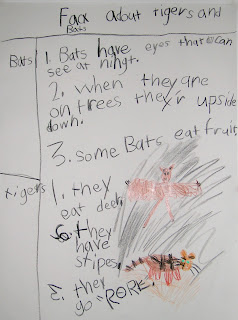 Fax adout tigers and
Bats
Bats
1. Bats have eyes that can
see at ningt.
2. when they are
on trees they'r upside
down.
3. some Bats eat fruit
tigers
1. they
eat deer.
they
have
stipes.
they
go "RORE."